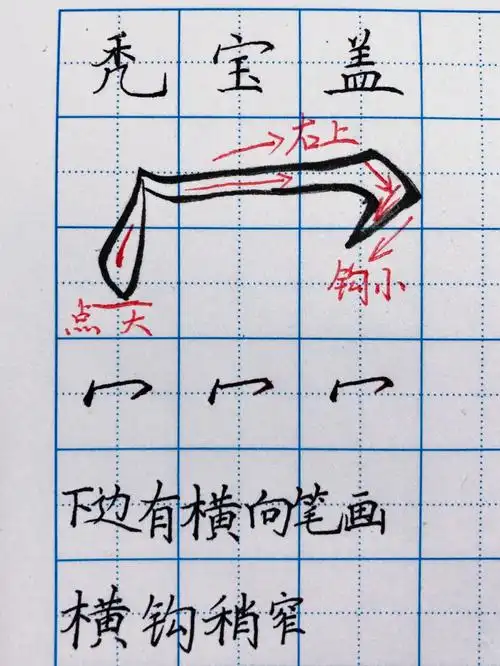 秃宝盖
右上
钩小
点大
冖冖冖
下边有横向笔画
横钩稍窄